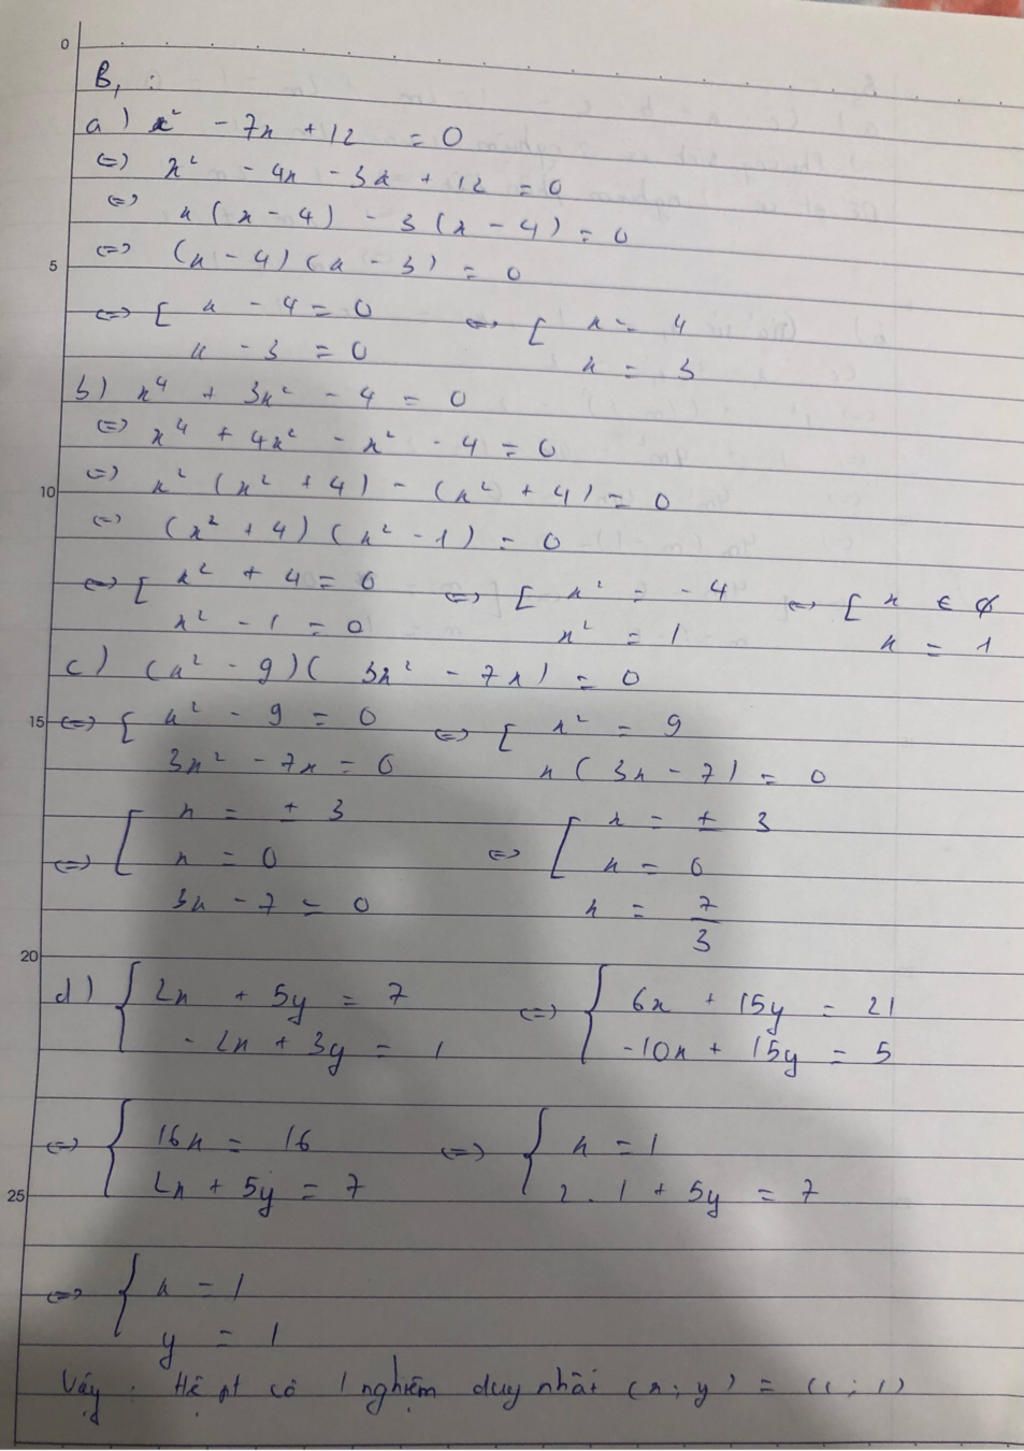 0
B₁ :
a) x² - 7x + 12 = 0
<=> x² - 4x - 3x + 12 = 0
<=> x(x - 4) - 3(x - 4) = 0
5 <=> (x - 4)(x - 3) = 0
<=> [ x - 4 = 0 <=> [ x = 4
x - 3 = 0 x = 3
b) x⁴ + 3x² - 4 = 0
<=> x⁴ + 4x² - x² - 4 = 0
10 <=> x² (x² + 4) - (x² + 4) = 0
<=> (x² + 4)(x² - 1) = 0
<=> [ x² + 4 = 0 <=> [ x² = -4 <=> [ x ∈ ∅
x² - 1 = 0 x² = 1 x = 1
c) (x² - 9)(3x² - 7x) = 0
15 <=> [ x² - 9 = 0 <=> [ x² = 9
3x² - 7x = 0 x(3x - 7) = 0
x = ± 3 x = ± 3
<=> [ x = 0 <=> [ x = 0
3x - 7 = 0 x = 7/3
20
d) { 2x + 5y = 7 <=> { 6x + 15y = 21
- 2x + 3y = 1 -10x + 15y = 5
<=> { 16x = 16 <=> { x = 1
25 2x + 5y = 7 2 . 1 + 5y = 7
<=> { x = 1
y = 1
Vậy : Hệ pt có 1 nghiệm duy nhất (x ; y) = (1 ; 1)